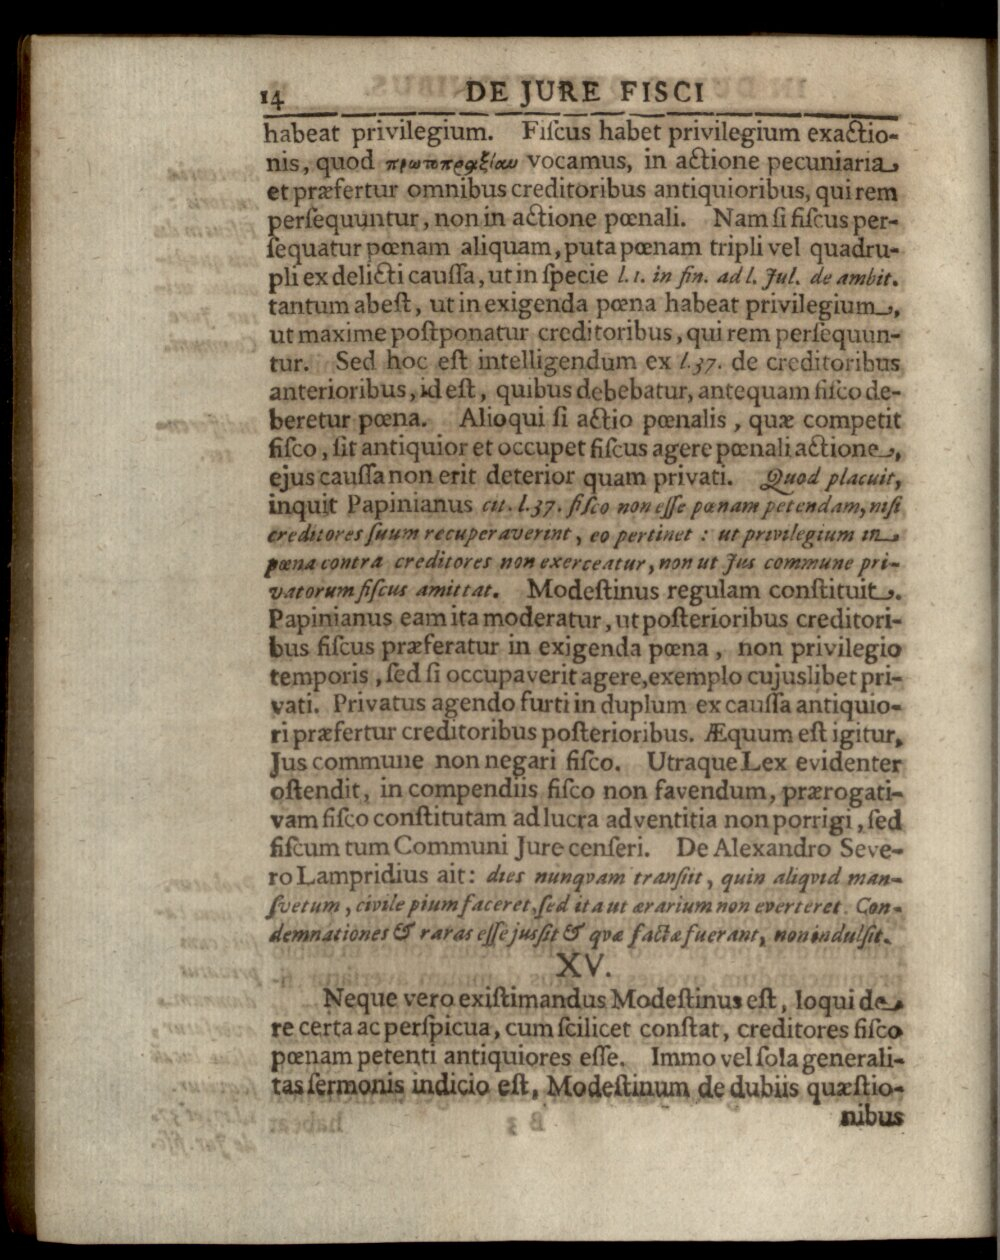 14 DE JURE FISCI
habeat privilegium. Fiſcus habet privilegium exactio-
nis, quod πρωτοπραξίαν vocamus, in actione pecuniaria,
et præfertur omnibus creditoribus antiquioribus, qui rem
perſequuntur, non in actione pœnali. Nam ſi fiſcus per-
ſequatur pœnam aliquam, puta pœnam tripli vel quadru-
pli ex delicti cauſſa, ut in ſpecie l. 1. in fin. ad l. Jul. de ambit.
tantum abeſt, ut in exigenda pœna habeat privilegium,
ut maxime poſtponatur creditoribus, qui rem perſequun-
tur. Sed hoc eſt intelligendum ex l. 37. de creditoribus
anterioribus, id eſt, quibus debebatur, antequam fiſco de-
beretur pœna. Alioqui ſi actio pœnalis, quæ competit
fiſco, ſit antiquior et occupet fiſcus agere pœnali actione,
ejus cauſſa non erit deterior quam privati. Quod placuit,
inquit Papinianus cit. l. 37. fiſco non eſſe pœnam petendam, niſi
creditores ſuum recuperaverint, eo pertinet: ut privilegium in
pœna contra creditores non exerceatur, non ut Jus commune pri-
vatorum fiſcus amittat. Modeſtinus regulam conſtituit.
Papinianus eam ita moderatur, ut poſterioribus creditori-
bus fiſcus præferatur in exigenda pœna, non privilegio
temporis, ſed ſi occupaverit agere, exemplo cujuslibet pri-
vati. Privatus agendo furti in duplum ex cauſſa antiquio-
ri præfertur creditoribus poſterioribus. Æquum eſt igitur,
Jus commune non negari fiſco. Utraque Lex evidenter
oſtendit, in compendiis fiſco non favendum, prærogati-
vam fiſco conſtitutam ad lucra adventitia non porrigi, ſed
fiſcum tum Communi Jure cenſeri. De Alexandro Seve-
ro Lampridius ait: dies nunqvam tranſiit, quin aliqvid man-
ſvetum, civile pium faceret, ſed ita ut ærarium non everteret. Con-
demnationes & raras eſſe juſſit & qvæ factæ fuerant, non indulſit.
XV.
Neque vero exiſtimandus Modeſtinus eſt, loqui de
re certa ac perſpicua, cum ſcilicet conſtat, creditores fiſco
pœnam petenti antiquiores eſſe. Immo vel ſola generali-
tas ſermonis indicio eſt, Modeſtinum de dubiis quæſtio-
nibus